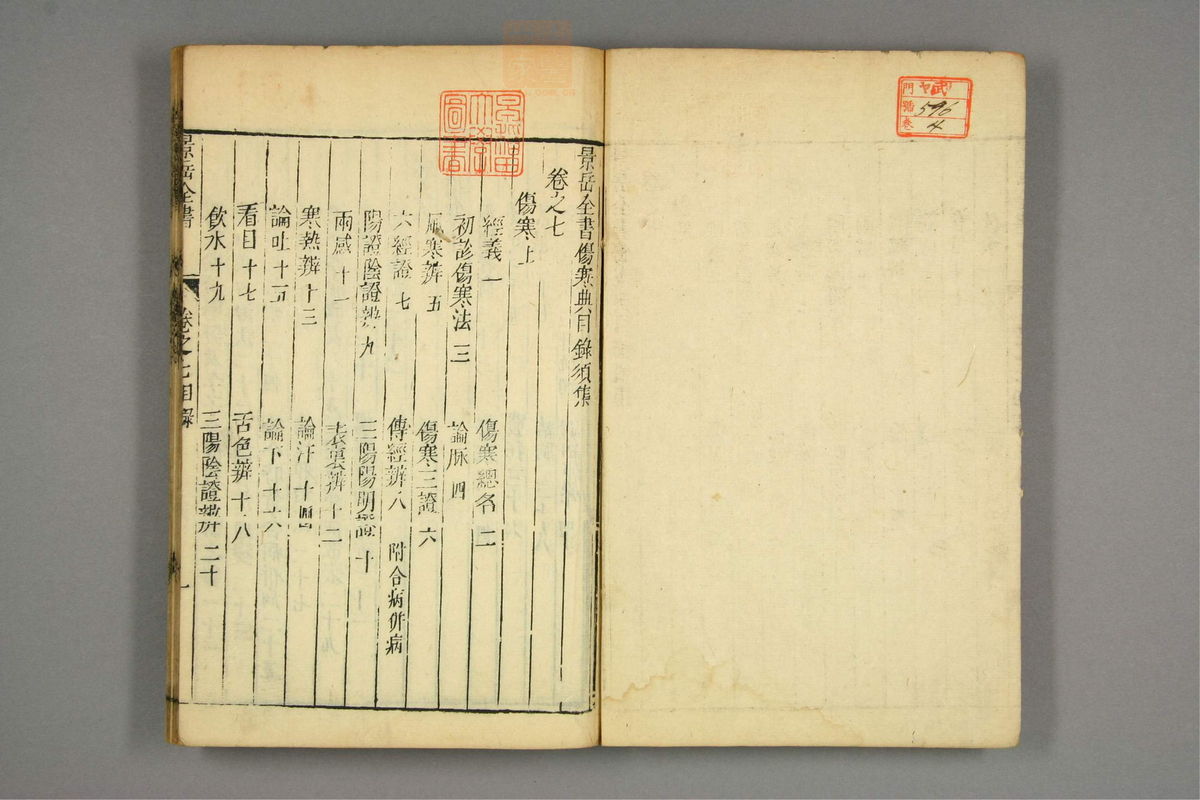 門 武 ヤ
號 596
卷 4
早稲田大學圖書
景岳全書傷寒典目錄須集
卷之七
傷寒上
經義一 傷寒總名二
初診傷寒法三 論脉四
風寒辨五 傷寒三證六
六經證七 傳經辨八 附合病併病
陽證陰證辨九 三陽陽明證十
兩感十一 表裏辨十二
寒熱辨十三 論汗十四
論吐十五 論下十六
看目十七 舌色辨十八
飲水十九 三陽陰證辨二十
景岳全書 卷之七目錄 一